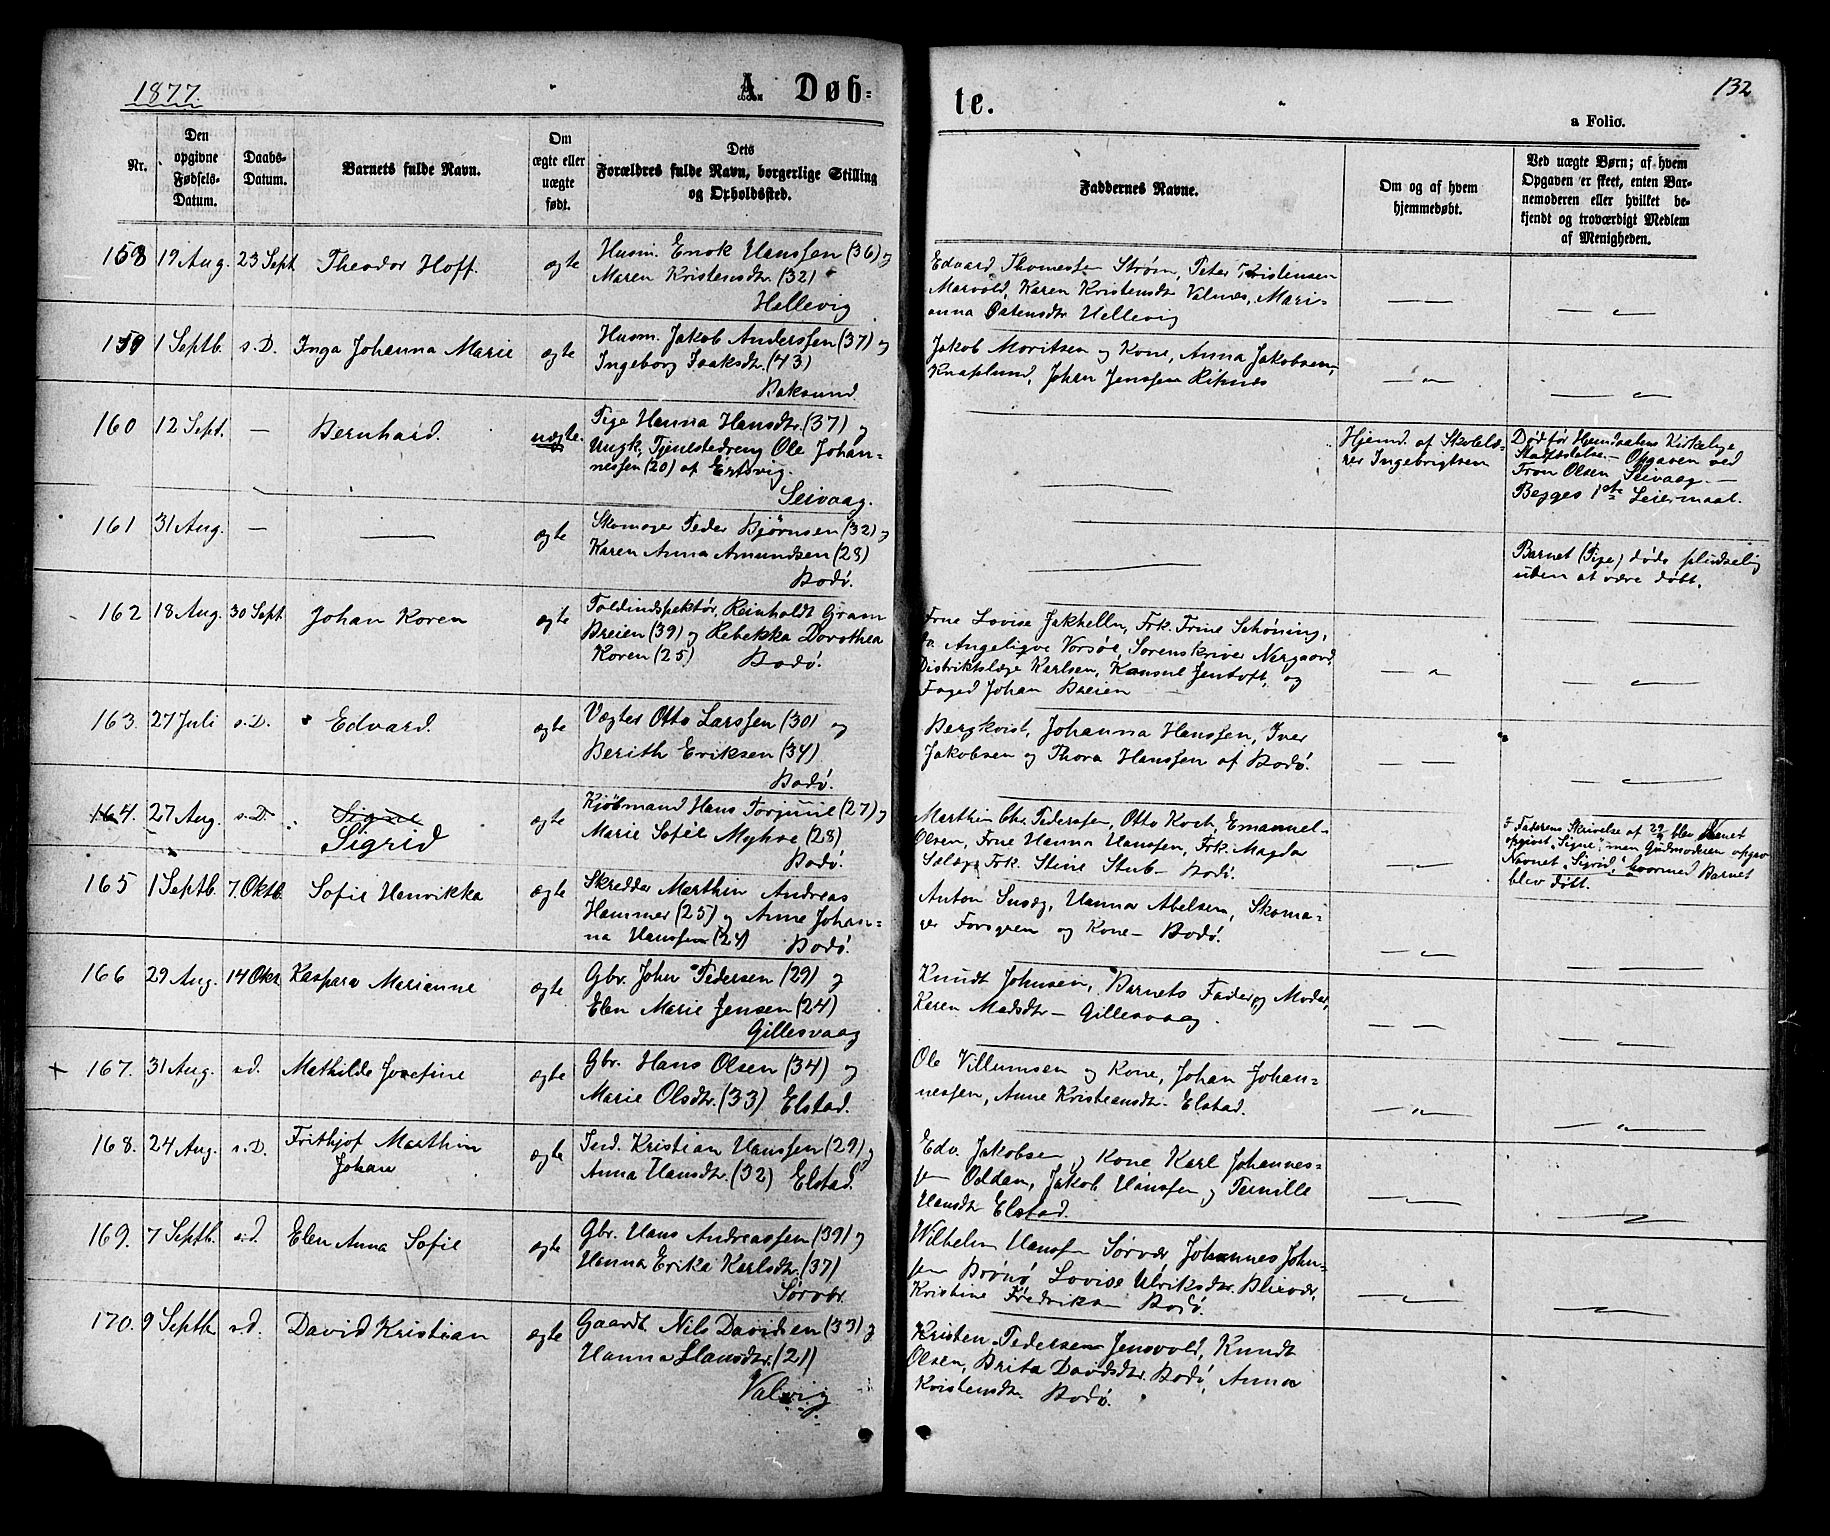 1877.
A. Døb-
te.
132
a Folio.
Nr.
Den opgivne Fødsels-Datum.
Daabs-Datum.
Barnets fulde Navn.
Om ægte eller uægte født.
Dets Forældres fulde Navn, borgerlige Stilling og Opholdssted.
Faddernes Navne.
Om og af hvem hjemmedøbt.
Ved uægte Børn; af hvem Opgaven er skeet, enten Barnemoderen eller hvilket bekjendt og troværdigt Medlem af Menigheden.
158 19 Aug. 23 Sept Theodor Hoff. ægte Husm. Enok Hanssen (36) og
Maren Kristensdtr. (32)
Hellevig
Edvard Thomessen Strøm, Peter Kristensen
Marvold, Karen Kristensdtr Valnes, Mari-
anna Østensdtr Hellevig
159 1 Septb. s.D. Inga Johanna Marie ægte Husm. Jakob Anderssen (37) og
Ingeborg Isaksdtr. (43)
Baksund.
Jakob Moritsen og Kone, Anna Jakobsen,
Knaplund, Johan Jenssen Ripnes
160 12 Sept. — Bernhard. uægte. Pige Hanna Hansdtr. (37) og
Ungk. Tjenestedreng Ole Johan-
nessen (20) af Ertsvig.
Seivaag.
Hjemd. af Skolelæ-
rer Ingebrigtsen
Død før Hjemdaabens Kirkelige
Stadfæstelse. - Opgaven ved
Fron Olsen Seivaag. -
Begges 1ste Leiermaal.
161 31 Aug. — — ægte Skomager Peder Bjørnsen (32) og
Karen Anna Amundsen (28)
Bodø.
Barnet (Pige) døde pludselig
uden at være døbt.
162 18 Aug. 30 Sept Johan Koren ægte Toldindspektør Reinholdt Gram
Breien (39) og Rebekka Dorothea
Koren (25) Bodø.
Frue Lovise Jakhelln, Frk. Trine Schøning,
do. Angelique Vorsøe, Sorenskriver Nergaard
Distriktslæge Karlsen, Konsul Jentoft, og
Foged Johan Breien
163. 27 Juli s.D. Edvard. ægte Vægter Otto Larssen (30) og
Berith Eriksen (34)
Bodø.
Bergkvist, Johanna Hanssen, Iver
Jakobsen og Thora Hanssen af Bodø.
164. 27 Aug. s.D. Signe
Sigrid
ægte Kjøbmand Hans Torjuul (27) og
Marie Sofie Myhre (28)
Bodø.
Marthin Chr. Pederssen, Otto Koch, Emanuel
Olsen, Frue Hanna Hanssen, Frk. Magda
Frk. Stine Stub - Bodø.
I Faderens Skrivelse af 29/9 blev Navnet
opgivet "Signe", men Gudmoderen opgav
Navnet "Sigrid", hvormed Barnet
blev døbt.
165 1 Septb. 7. Oktb. Sofie Henrikka ægte Skredder Marthin Andreas
Hammer (25) og Anne Johan-
na Hanssen (24) Bodø.
Anton Hanna Abelsen, Skoma-
ger Forsgren og Kone - Bodø.
166 29 Aug. 14 Okt Kaspara Marianne ægte Gbr. John Pedersen (29) og
Elen Marie Jensen (24)
Gillesvaag
Knudt Johnsen, Barnets Fader og Moder,
Karen Madsdtr - Gillesvaag.
167. 31 Aug. s.d. Mathilde Josefine ægte Gbr. Hans Olsen (34) og
Marie Olsdtr. (33) Elstad.
Ole Villumsen og Kone, Johan Johan-
nessen, Anne Kristiansdtr - Elstad.
168. 24 Aug. s.D. Frithjof Marthin
Johan
ægte Ind. Kristian Hanssen (29) og
Anna Hansdtr. (32) Elstad.
Edv. Jakobsen og Kone, Karl Johannes-
sen Oddan, Jakob Hanssen og Pernille
Hansdtr Elstad.
169. 7 Septb. s.d. Elen Anna Sofie ægte Gbr. Hans Andreassen (39) og
Hanna Erika Karlsdtr. (37)
Sørvær.
Wilhelm Hanssen Sørvær, Johannes John-
sen Brønø, Lovise Ulriksdtr. Blievær,
Kristine Fredriksen Bodø.
170. 9 Septb. s.d. David Kristian ægte Gaardt. Nils Davidsen (33) og
Hanna Hansdtr. (21)
Valvig
Kristen Pedersen Jensvold, Knudt
Olsen, Brita Davidsdtr. Bodø, Anna
Kristensdtr. Bodø.